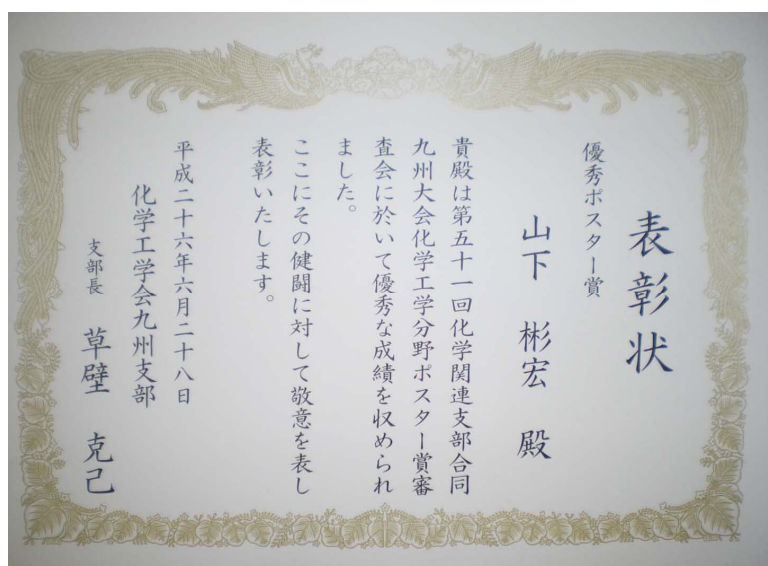 表彰状
優秀ポスター賞
山下 彬宏 殿
貴殿は第五十一回化学関連支部合同
九州大会化学工学分野ポスター賞審
査会に於いて優秀な成績を収められ
ました。
ここにその健闘に対して敬意を表し
表彰いたします。
平成二十六年六月二十八日
化学工学会九州支部
支部長 草壁 克己